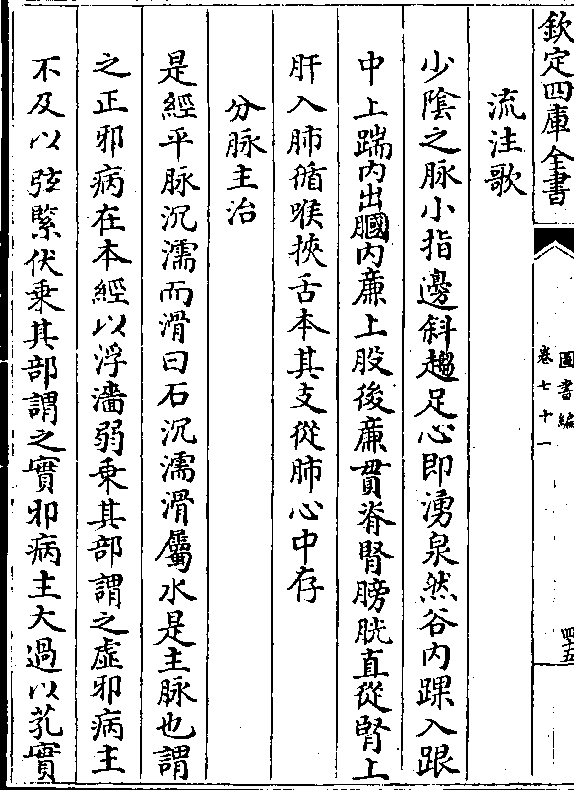 欽定四庫全書
圖書編
卷七十一
四十五
流注歌
少陰之脉小指邊斜趨足心即湧泉然谷内踝入跟
中上踹内出膕内廉上股後廉貫脊腎膀胱直從腎上
肝入肺循喉挾舌本其支從肺心中存
分脉主治
是經平脉沉濡而滑曰石沉濡滑屬水是主脉也謂
之正邪病在本經以浮濇弱乗其部謂之虚邪病主
不及以弦緊伏乗其部謂之實邪病主大過以芤實